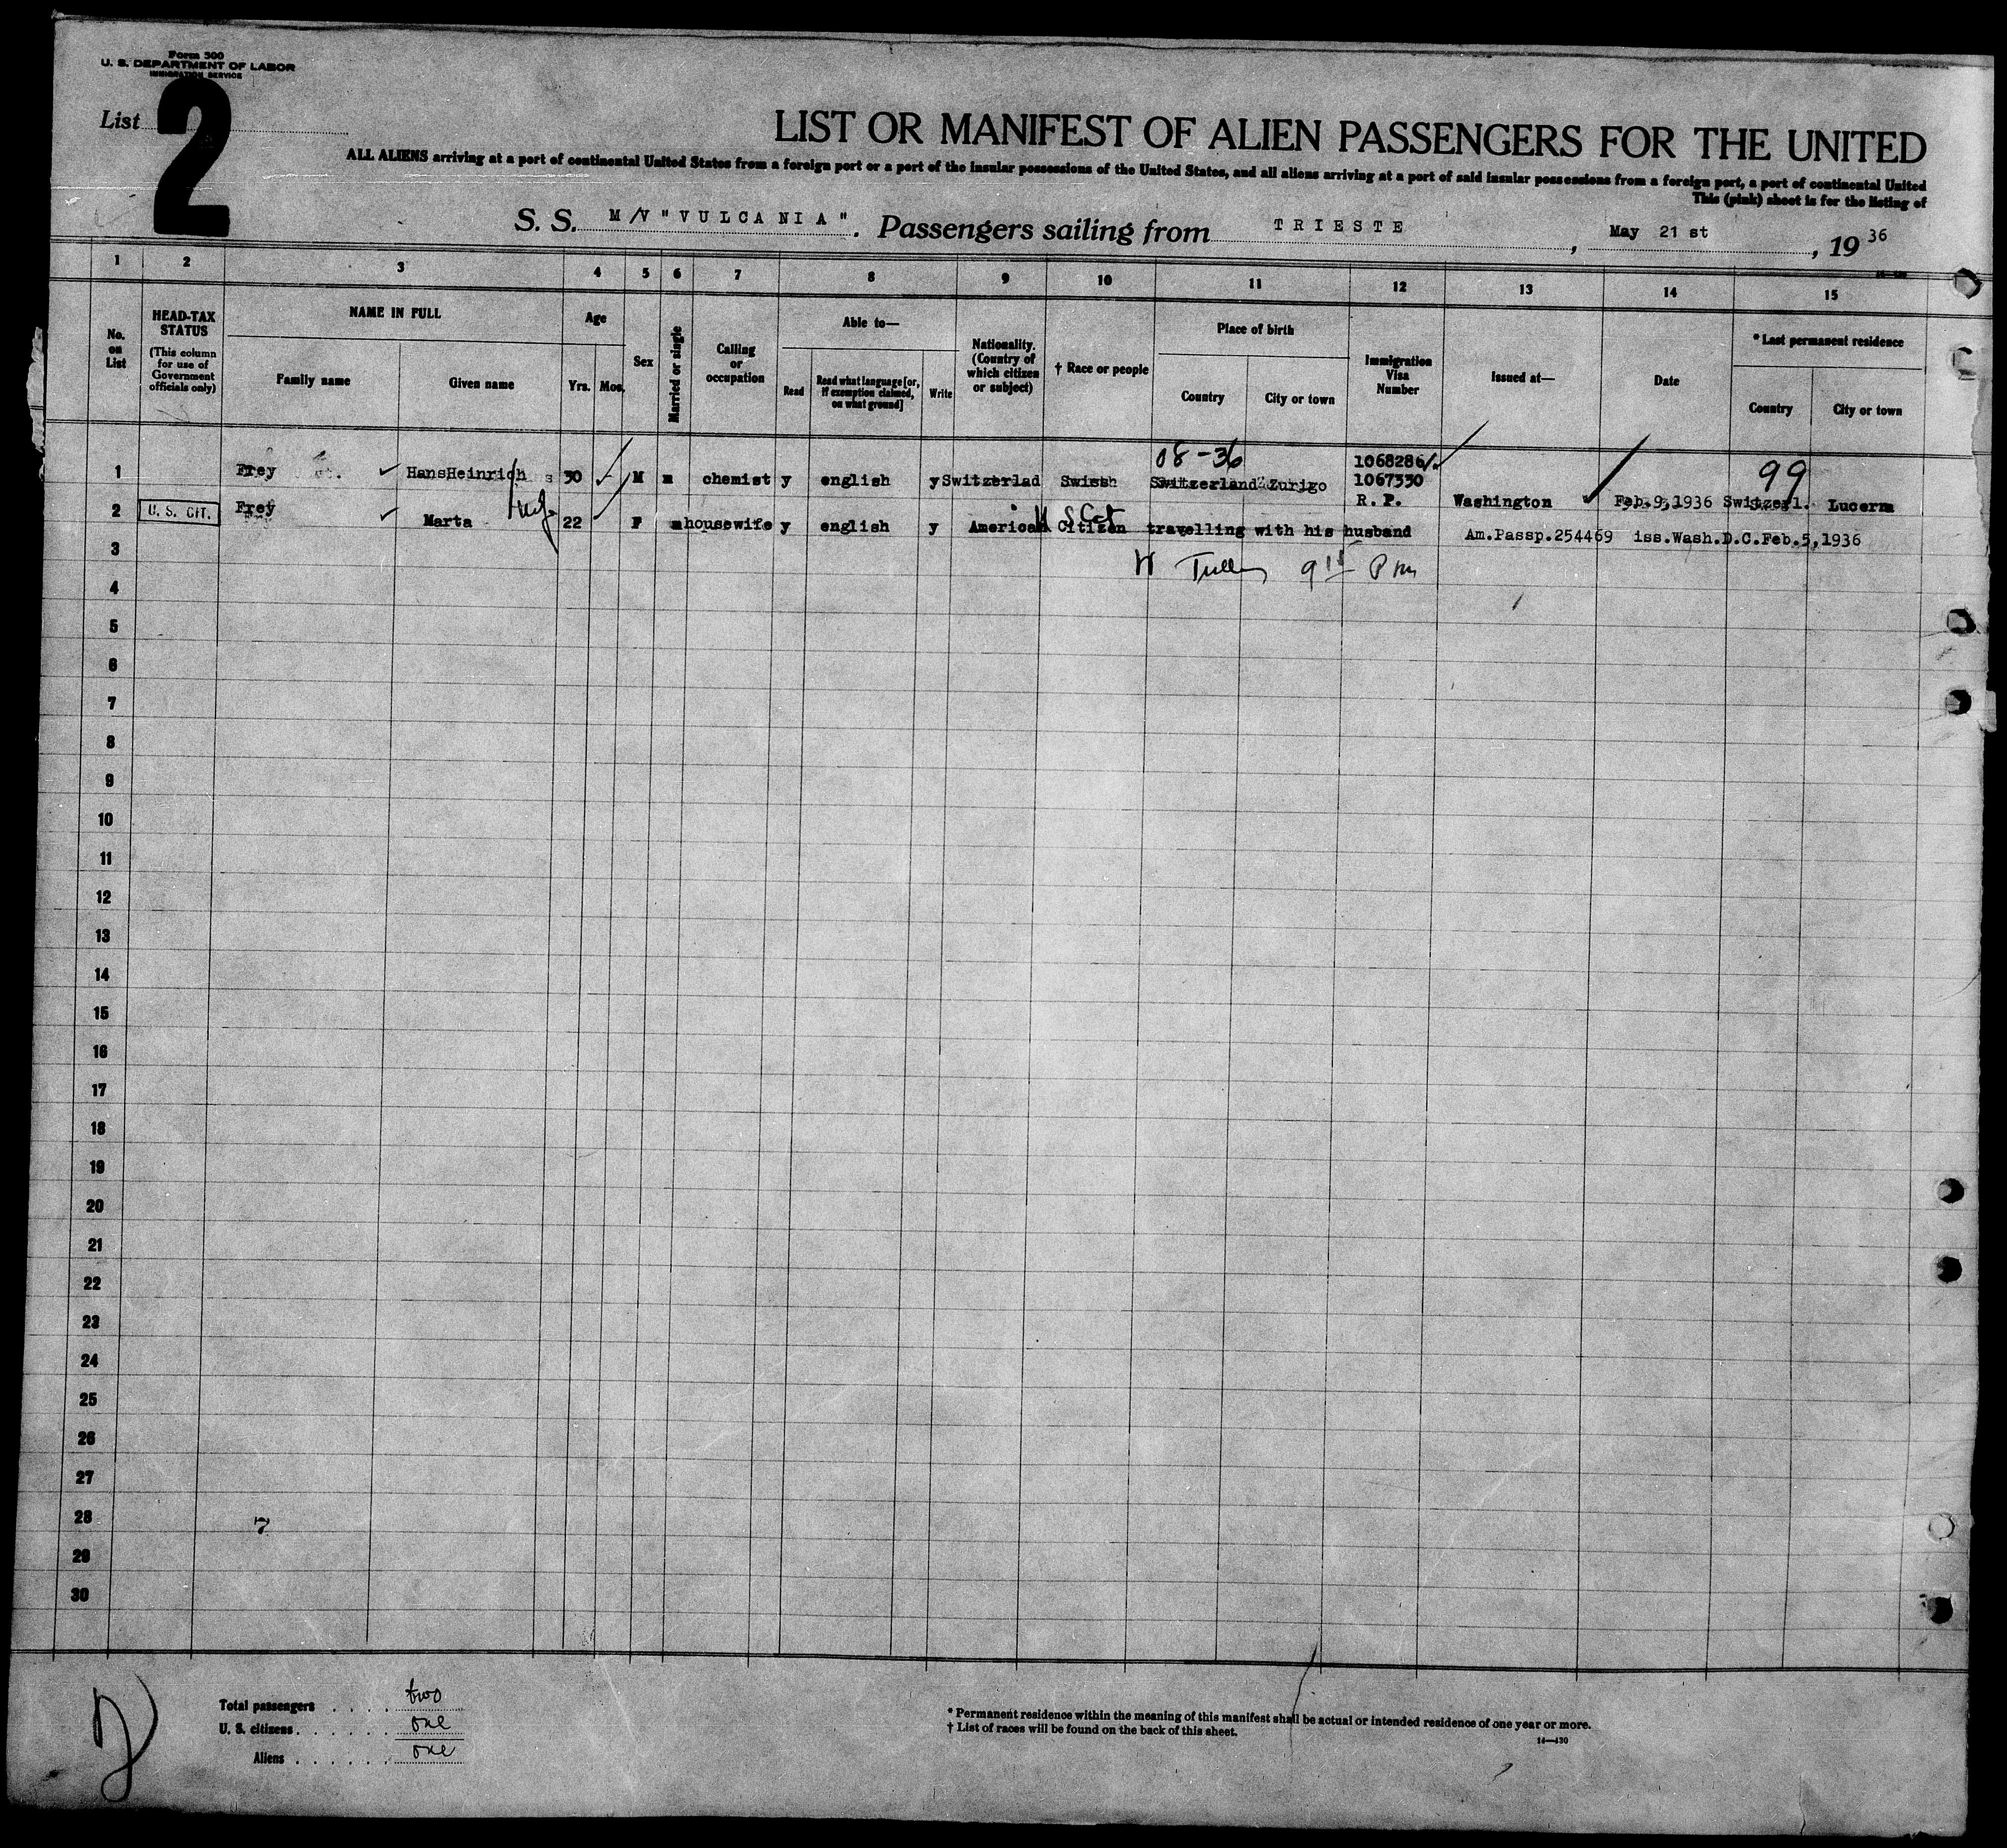 Form 500
U. S. DEPARTMENT OF LABOR
IMMIGRATION SERVICE
List 2
LIST OR MANIFEST OF ALIEN PASSENGERS FOR THE UNITED
ALL ALIENS arriving at a port of continental United States from a foreign port or a port of the insular possessions of the United States, and all aliens arriving at a port of said insular possessions from a foreign port, a port of continental United
This (pink) sheet is for the listing of
S. S. M/V "VULCANIA". Passengers sailing from TRIESTE, May 21 st, 19 36
1 2 3 4 5 6 7 8 9 10 11 12 13 14 15
No. on List
HEAD-TAX STATUS
(This column for use of Government officials only)
NAME IN FULL
Family name
Given name
Age
Yrs. Mos.
Sex
Married or single
Calling or occupation
Able to—
Read
Read what language [or, if exemption claimed, on what ground]
Write
Nationality. (Country of which citizen or subject)
† Race or people
Place of birth
Country
City or town
Immigration Visa Number
Issued at—
Date
* Last permanent residence
Country
City or town
08-36 1068286 99
1 Frey HansHeinrich s 30 M m chemist y english y Switzerlad Swissh Switzerland Zurigo 1067330
R. P. Washington Feb.9,1936 Switzerl. Lucern
2 U. S. CIT. Frey Marta Wife 22 F m housewife y english y American Citizen travelling with his husband Am.Passp.254469 iss.Wash.D.C.Feb.5,1936
U S Cit
9 15 P m
3
4
5
6
7
8
9
10
11
12
13
14
15
16
17
18
19
20
21
22
23
24
25
26
27
28 7
29
30
Total passengers . . . . two
U. S. citizens . . . . . . one
Aliens . . . . . . one
* Permanent residence within the meaning of this manifest shall be actual or intended residence of one year or more.
† List of races will be found on the back of this sheet.
14—430